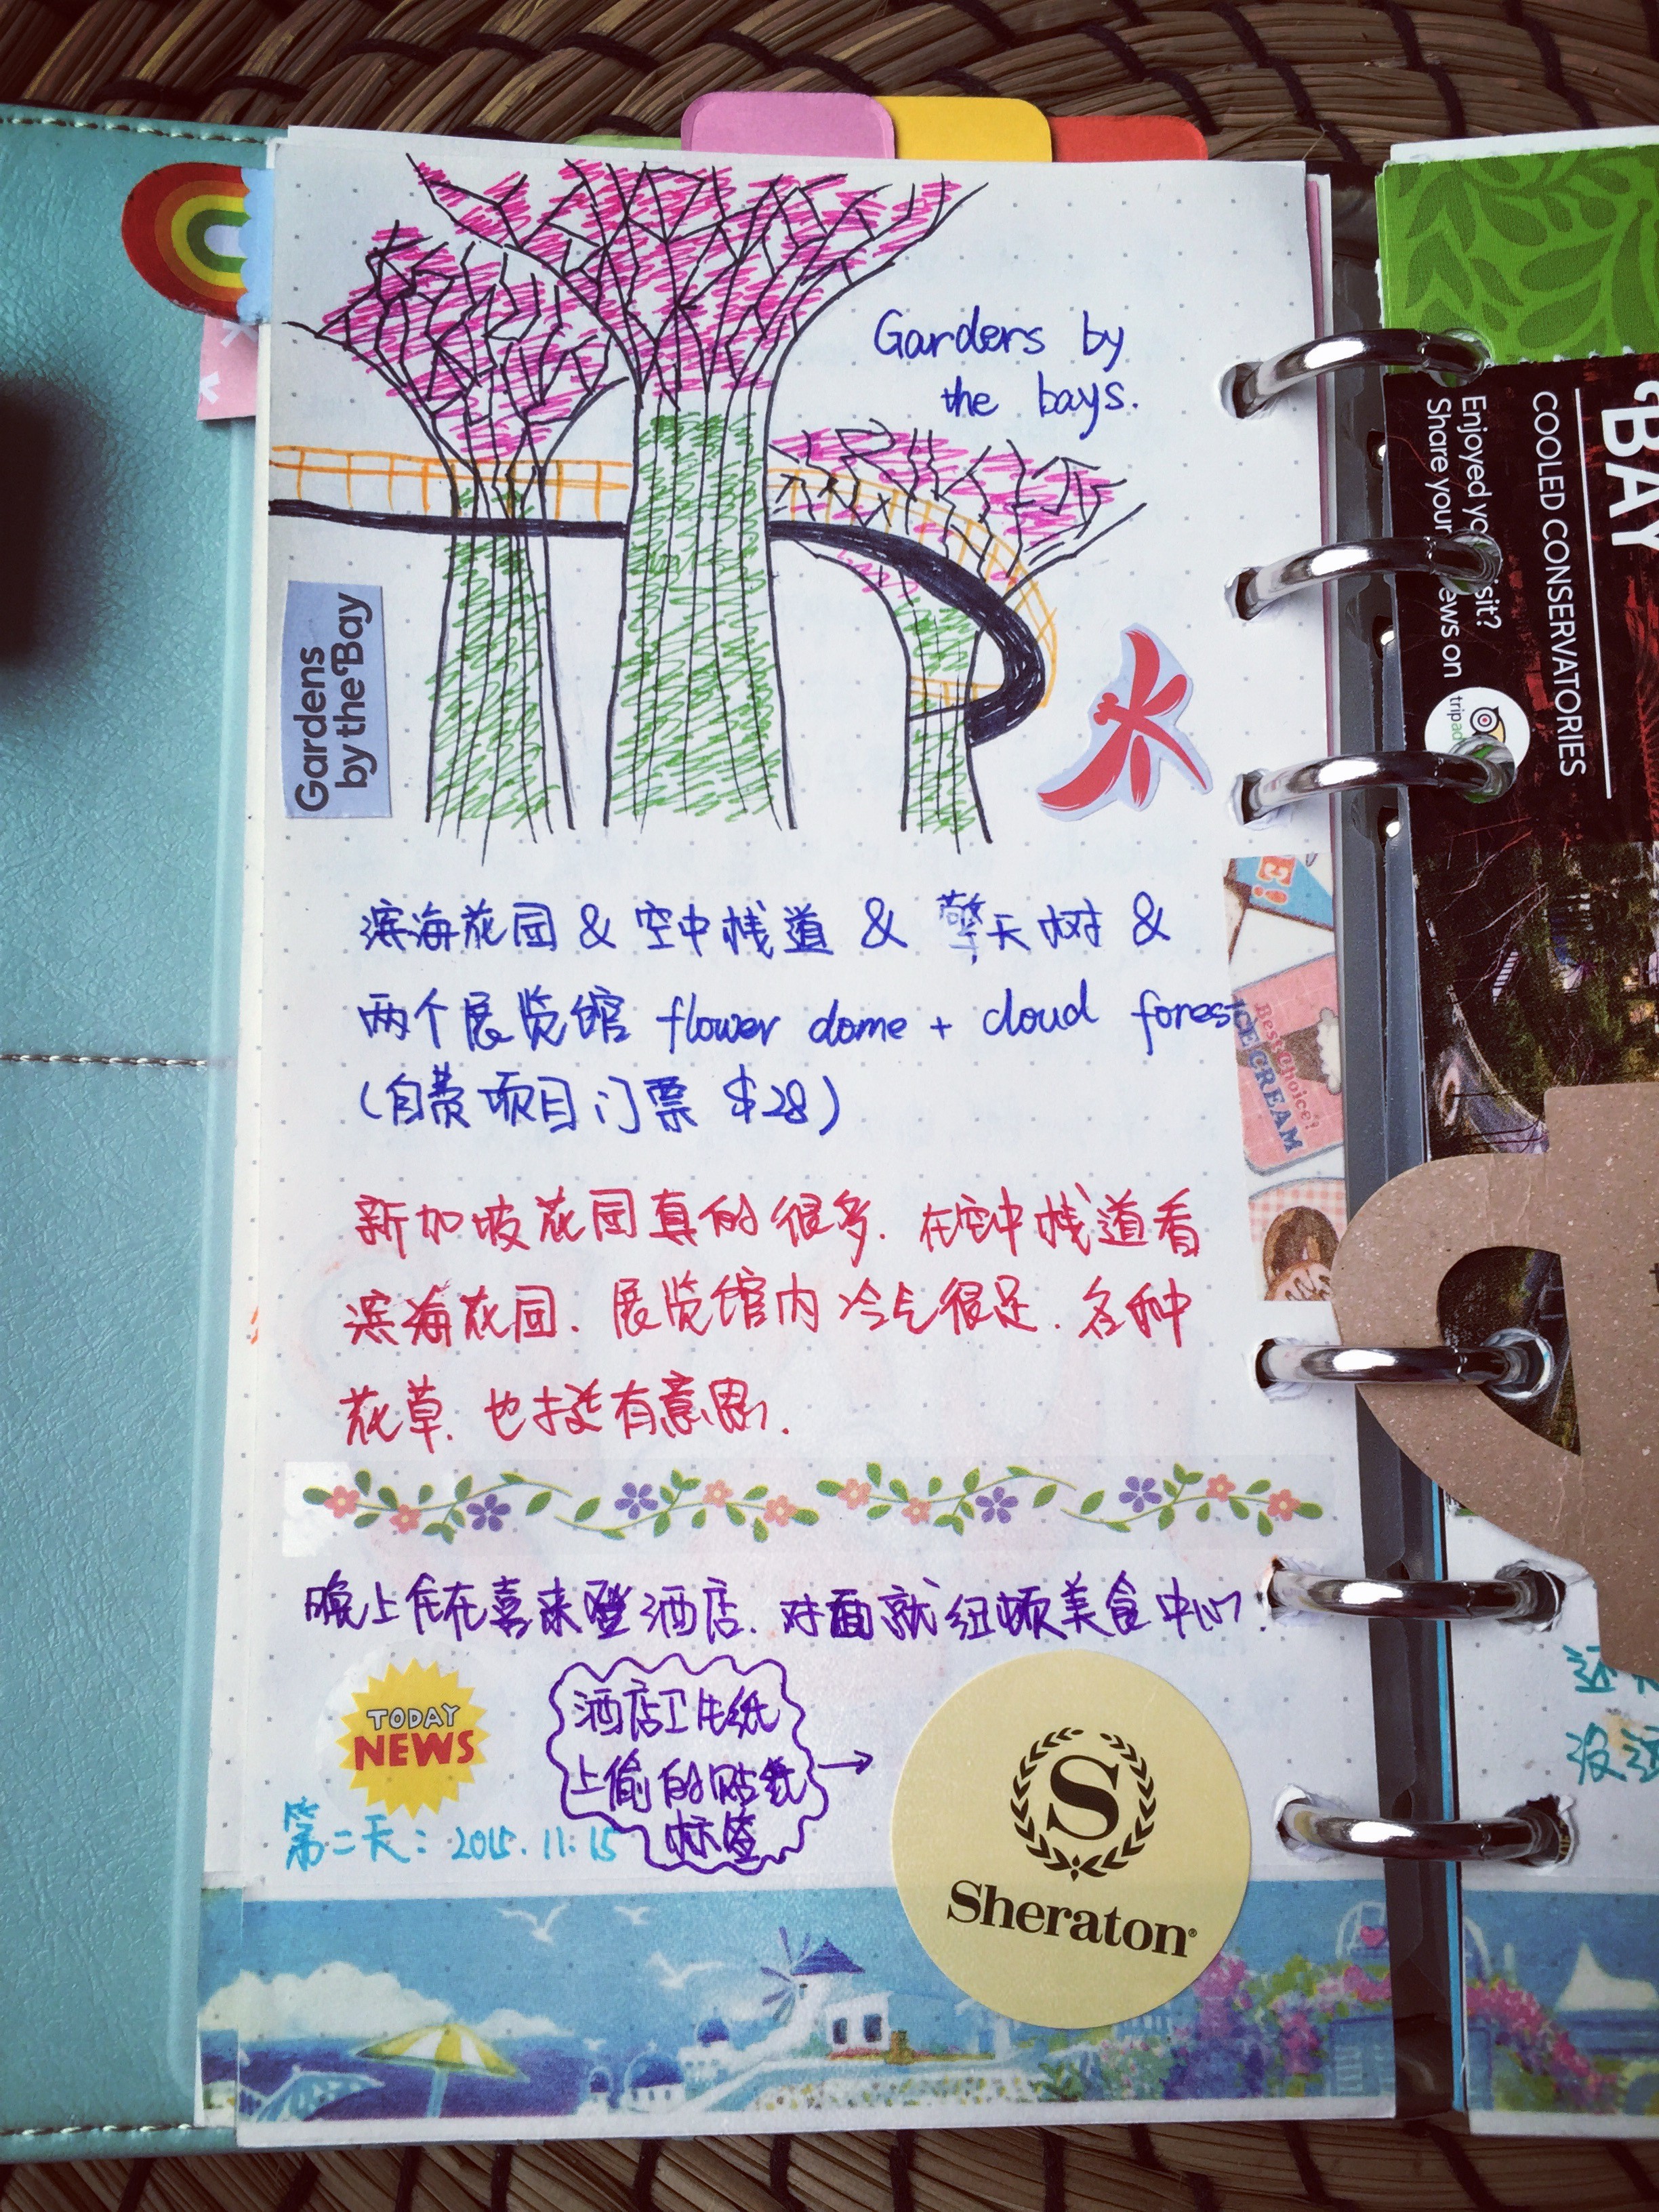 Garders by
the bays.
Gardens
by the Bay
滨海花园 & 空中栈道 & 擎天树 &
两个展览馆 flower dome + cloud forest
(自费项目门票 $28)
新加坡花园真的很多. 在空中栈道看
滨海花园. 展览馆内冷气很足. 各种
花草. 也挺有意思.
晚上住在喜来登酒店. 对面就纽顿美食中心.
TODAY
NEWS
酒店卫生纸
上偷的贴纸
标签
→
第二天: 2015.11.15
S
Sheraton
Best Choice!
ICE CREAM
BAY
COOLED CONSERVATORIES
Enjoyed
Share your
ews on